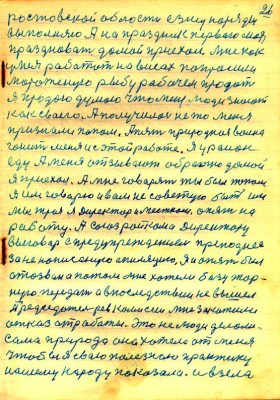 26
ростовской области езжу наряды
выполняю А на праздник первого мая
праздновать домой приехал. Мне как
умея работат на весах попросили
мороженую рыбу рабочем продат
я продою думаю что мену люди знают
как своего. А получилос не то меня
признали попом. Опят природная война
гонит меня из этой работе. Я ураион
еду А меня отзывают обратно домой
Я приехал. А мне говорят ты был попом
Я им говорю и вам не советую быт им
Мы трои Я директор и местком. опят на
работу. А Союз раикома Директору
выговар с предупреждением преподнес
за не Я опят был
отозван а потом мне хотели базу
передат а впоследствии не вышел
Председател рев комисии мне
отказ от работи. Это не люди делом
Сама природа она хотела от меня
чтобы Я сваю полезною практику
нашему народу показала. и взела